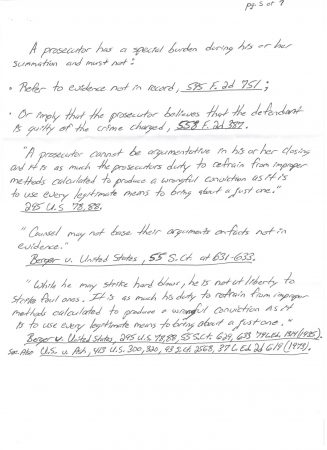 pg. 5 of 7
A prosecutor has a special burden during his or her
summation and must not:
• Refer to evidence not in record, 575 F. 2d 751;
• Or imply that the prosecutor believes that the defendant
is guilty of the crime charged, 558 F. 2d 387.
"A prosecutor cannot be argumentative in his or her closing
and it is as much the prosecutors duty to refrain from improper
methods calculated to produce a wrongful conviction as it is
to use every legitimate means to bring about a just one."
295 U.S 78,88.
"Counsel may not base their arguments on facts not in
evidence."
Berger v. United States, 55 S.Ct. at 631-633.
"While he may strike hard blows, he is not at liberty to
strike foul ones. It is as much his duty to refrain from improper
methods calculated to produce a wrongful conviction as it
is to use every legitimate means to bring about a just one."
Berger v. United States, 295 U.S. 78,88, 55 S.Ct. 629, 633 79 L.Ed. 1314 (1935).
See Also U.S. v. Ash, 413 U.S. 300, 320, 93 S.Ct. 2568, 37 L.Ed. 2d 619 (1973).